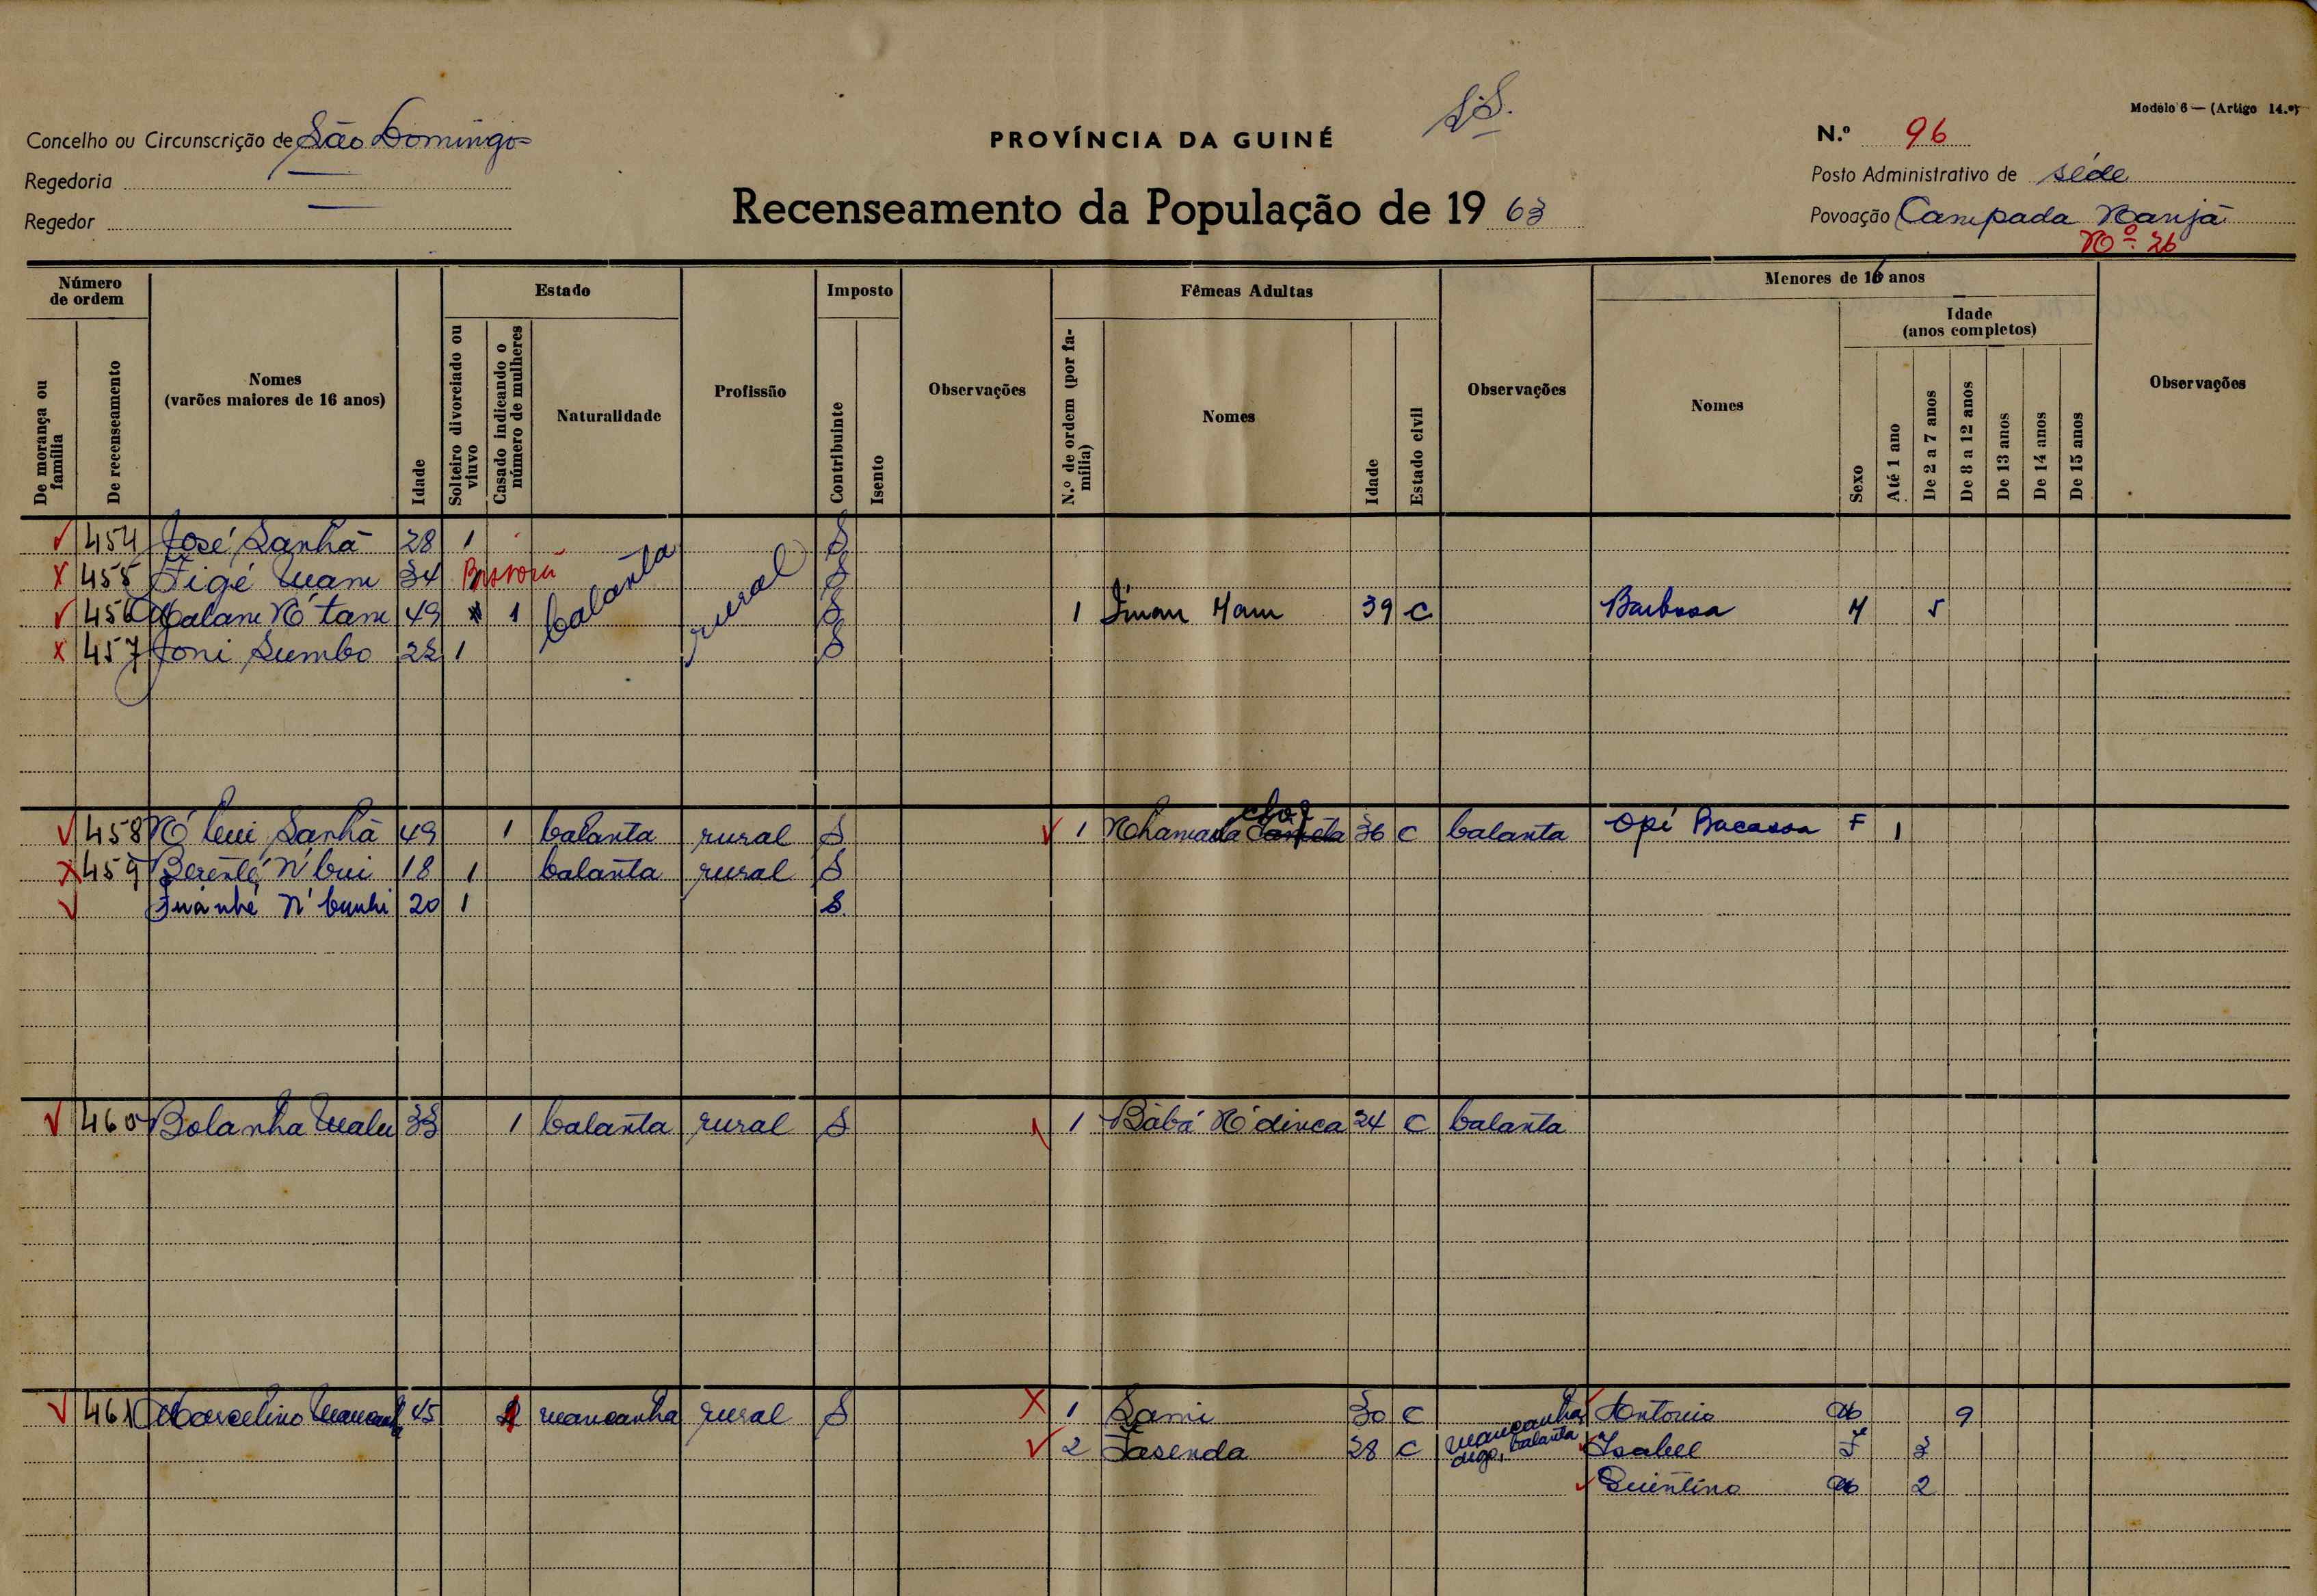 Modelo 6 — (Artigo 14.º)
Concelho ou Circunscrição de São Domingos
PROVÍNCIA DA GUINÉ
S.S.
N.º 96
Regedoria
Posto Administrativo de séde
Regedor
Recenseamento da População de 1963
Povoação Campada Nanjã
Nº 26
Número de ordem
De morança ou família
De recenseamento
Nomes (varões maiores de 16 anos)
Idade
Estado
Solteiro divorciado ou viuvo
Casado indicando o número de mulheres
Naturalidade
Profissão
Imposto
Contribuinte
Isento
Observações
Fêmeas Adultas
N.º de ordem (por família)
Nomes
Idade
Estado civil
Observações
Menores de 16 anos
Nomes
Sexo
Idade (anos completos)
Até 1 ano
De 2 a 7 anos
De 8 a 12 anos
De 13 anos
De 14 anos
De 15 anos
Observações
454 José Sanhã 28 1 S
455 34 S
balanta rural
456 49 1 S 1 39 C Barbosa M 5
457 Joni Sumbo 22 1 S
458 Sanhã 49 1 balanta rural S 1 36 C balanta Opi Bacassa F 1
459 N'bui 18 1 balanta rural S
20 1 S.
460 Bolanha Ualu 33 1 balanta rural S 1 Bàbá N'dinca 24 C balanta
461 Marcelino 45 mancanha rural S 1 Sami 30 C mancanha Antonio M 9
2 Fasenda 28 C digo, balanta Isabel F 3
Quintino M 2